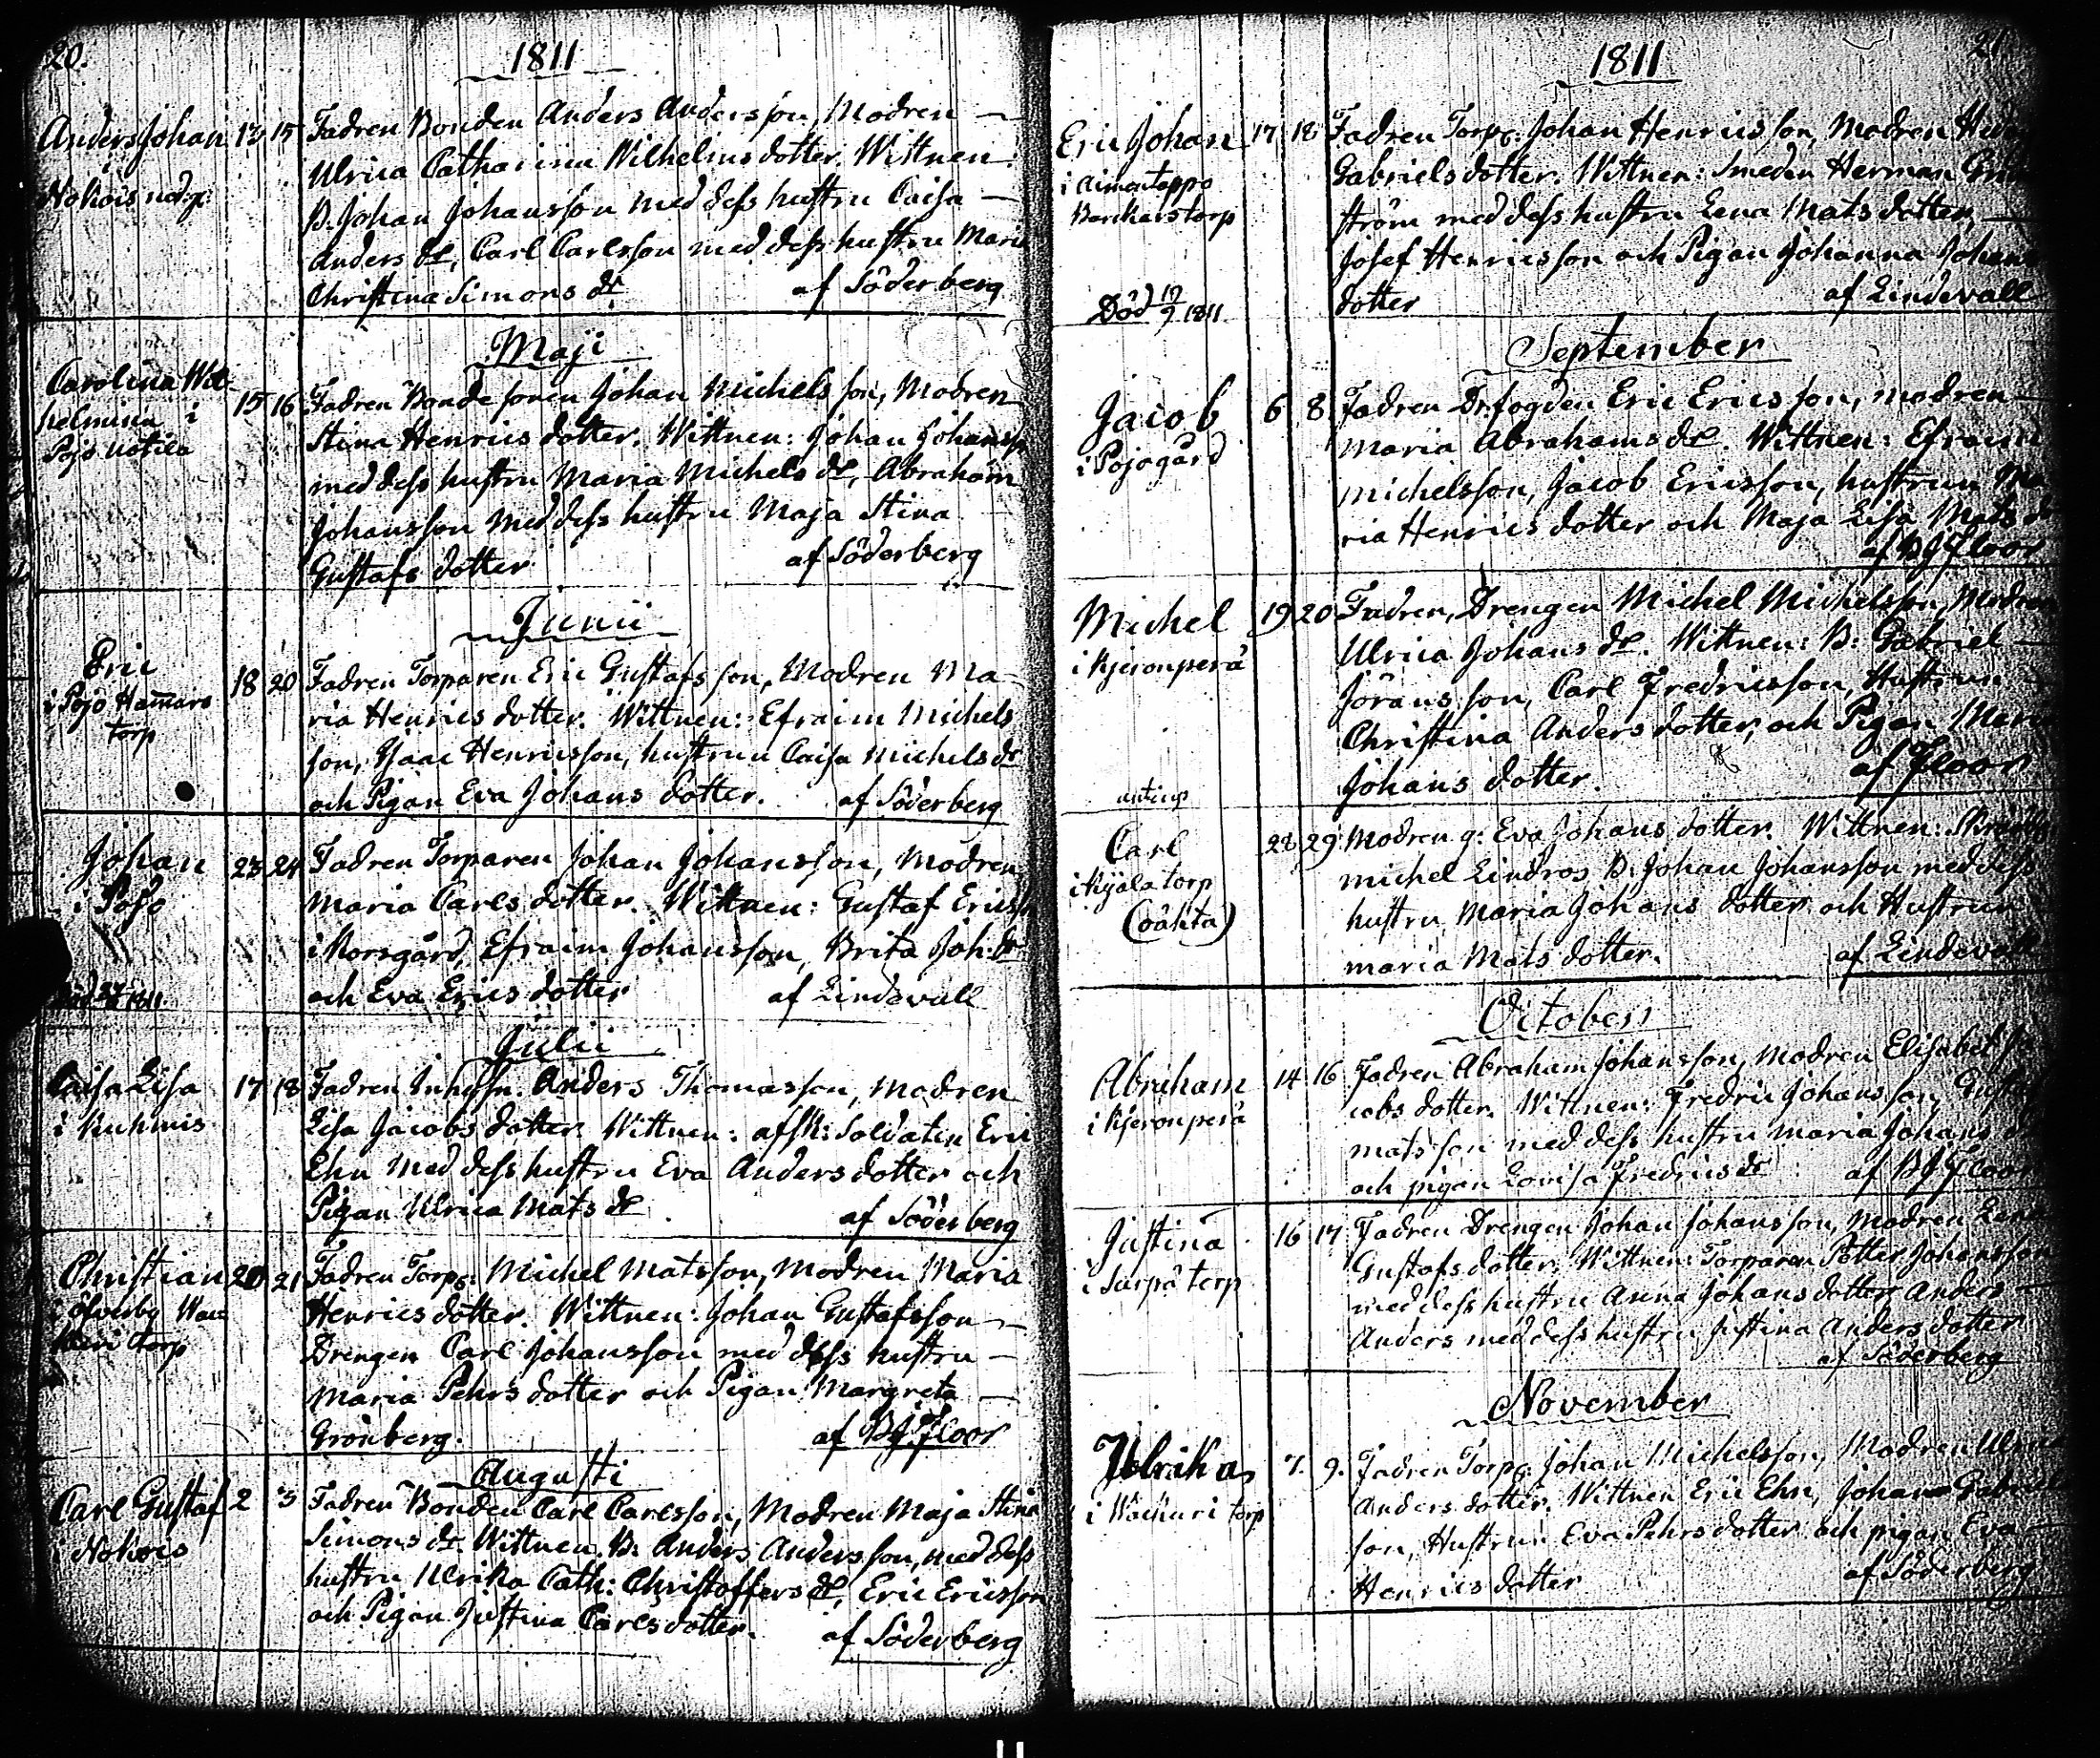 20.
1811
Anders Johan 13 15 Fadren Bonden Anders Andersson, Modren
Ulrica Catharina Wilhelmsdotter. Wittnen:
Nokois
B. Johan Johansson med dess hustru Caisa
Anders dr, Carl Carlsson med dess hustru Maria
Christina Simons dr. af Söderberg
Maji
Carolina Wil-
helmina i
Pojo
15 16 Fadren Bondesonen Johan Michelsson, Modren
Stina Henricsdotter. Wittnen: Johan Johansson
med dess hustru Maria Michels dr, Abraham
Johansson med dess hustru Maja Stina
Gustafs dotter af Söderberg
Junii
Eric
i Pojo Hamars
torp
18 20 Fadren Torparen Eric Gustafsson, Modren Ma-
ria Henricsdotter. Wittnen: Efraim Michels
son, Isaac Henricsson, hustrun Caisa Michels dr
och Pigan Eva Johans dotter. af Söderberg
Johan
i Pojo
23 24 Fadren Torparen Johan Johansson, Modren
Maria Carls dotter. Wittnen: Gustaf Ericss
i Korsgård, Efraim Johansson, Brita Joh: dr
och Eva Erics dotter af Lindevall
1811
Julii
Caisa Lisa
i Kuhmis
17 18 Fadren Inhysn. Anders Thomasson, Modren
Lisa Jacobs dotter. Wittnen: afsk: Soldaten Eric
Ehn med dess hustru Eva Anders dotter och
Pigan Ulrica Mats dr af Söderberg
Christian
i Ölverby
torp
20 21 Fadren Torp: Michel Matsson, Modren Maria
Henrics dotter. Wittnen: Johan Gustafsson
Drengen Carl Johansson med dess hustru
Maria Pehrs dotter och Pigan Margreta
Grönberg. af B J Floor
Augusti
Carl Gustaf
i Nokois
2 3 Fadren Bonden Carl Carlsson, Modren Maja Stina
Simons dr. Wittnen. B: Anders Andersson, med dess
hustru Ulrika Cath: Christoffers dr, Eric Ericsson
och Pigan Justina Carlsdotter. af Söderberg
1811
Eric Johan
torp
17 18 Fadren Torp: Johan Henricsson, Modren
Gabriels dotter. Wittnen: Smeden Herman
ström med dess hustru Lena Mats dotter,
Josef Henricsson och Pigan Johanna Johans
dotter af Lindevall
Död 1811
September
Jacob
i Pojogård
6 8 Fadren Dr.fogden Eric Ericsson, modren
Maria Abrahams dr. Wittnen: Efraim
Michelsson, Jacob Ericsson, hustrun Ma
ria Henrics dotter och Maja Lisa Mats d
af B J Floor
Michel
i Kjeronperä
19 20 Fadren, Drengen Michel Michelsson, Modren
Ulrica Johans dr. Wittnen: B: Gabriel
Jöransson, Carl Fredricsson, Hustrun
Christina Anders dotter, och Pigan Maria
Johans dotter. af Floor
Carl
i Kyäla torp
(oäkta)
28 29 Modren q: Eva Johans dotter. Wittnen:
Michel Lindros B. Johan Johansson med dess
hustru Maria Johans dotter och Hustrun
Maria Mats dotter. af Lindevall
October
Abraham
i Kjeronperä
14 16 Fadren Abraham Johansson, Modren Elisabet Ja
cobs dotter. Wittnen: Fredric Johansson, Gustaf
Matsson med dess hustru Maria Johans
och pigan Lovisa Fredrics dr af B J Floor
Justina
i Surpå torp
16 17 Fadren Drengen Johan Johansson, Modren Lena
Gustafs dotter. Wittnen: Torparen Petter Johansson
med dess hustru Anna Johans dotter Anders
Anders med dess hustru Justina Anders dotter
af Söderberg
November
Ulrika
torp
7. 9. Fadren Torp: Johan Michelsson, Modren Ulrica
Anders dotter. Wittnen Eric Ehn, Johan Gabriels
son, Hustrun Eva Pehrs dotter och pigan Eva
Henrics dotter af Söderberg